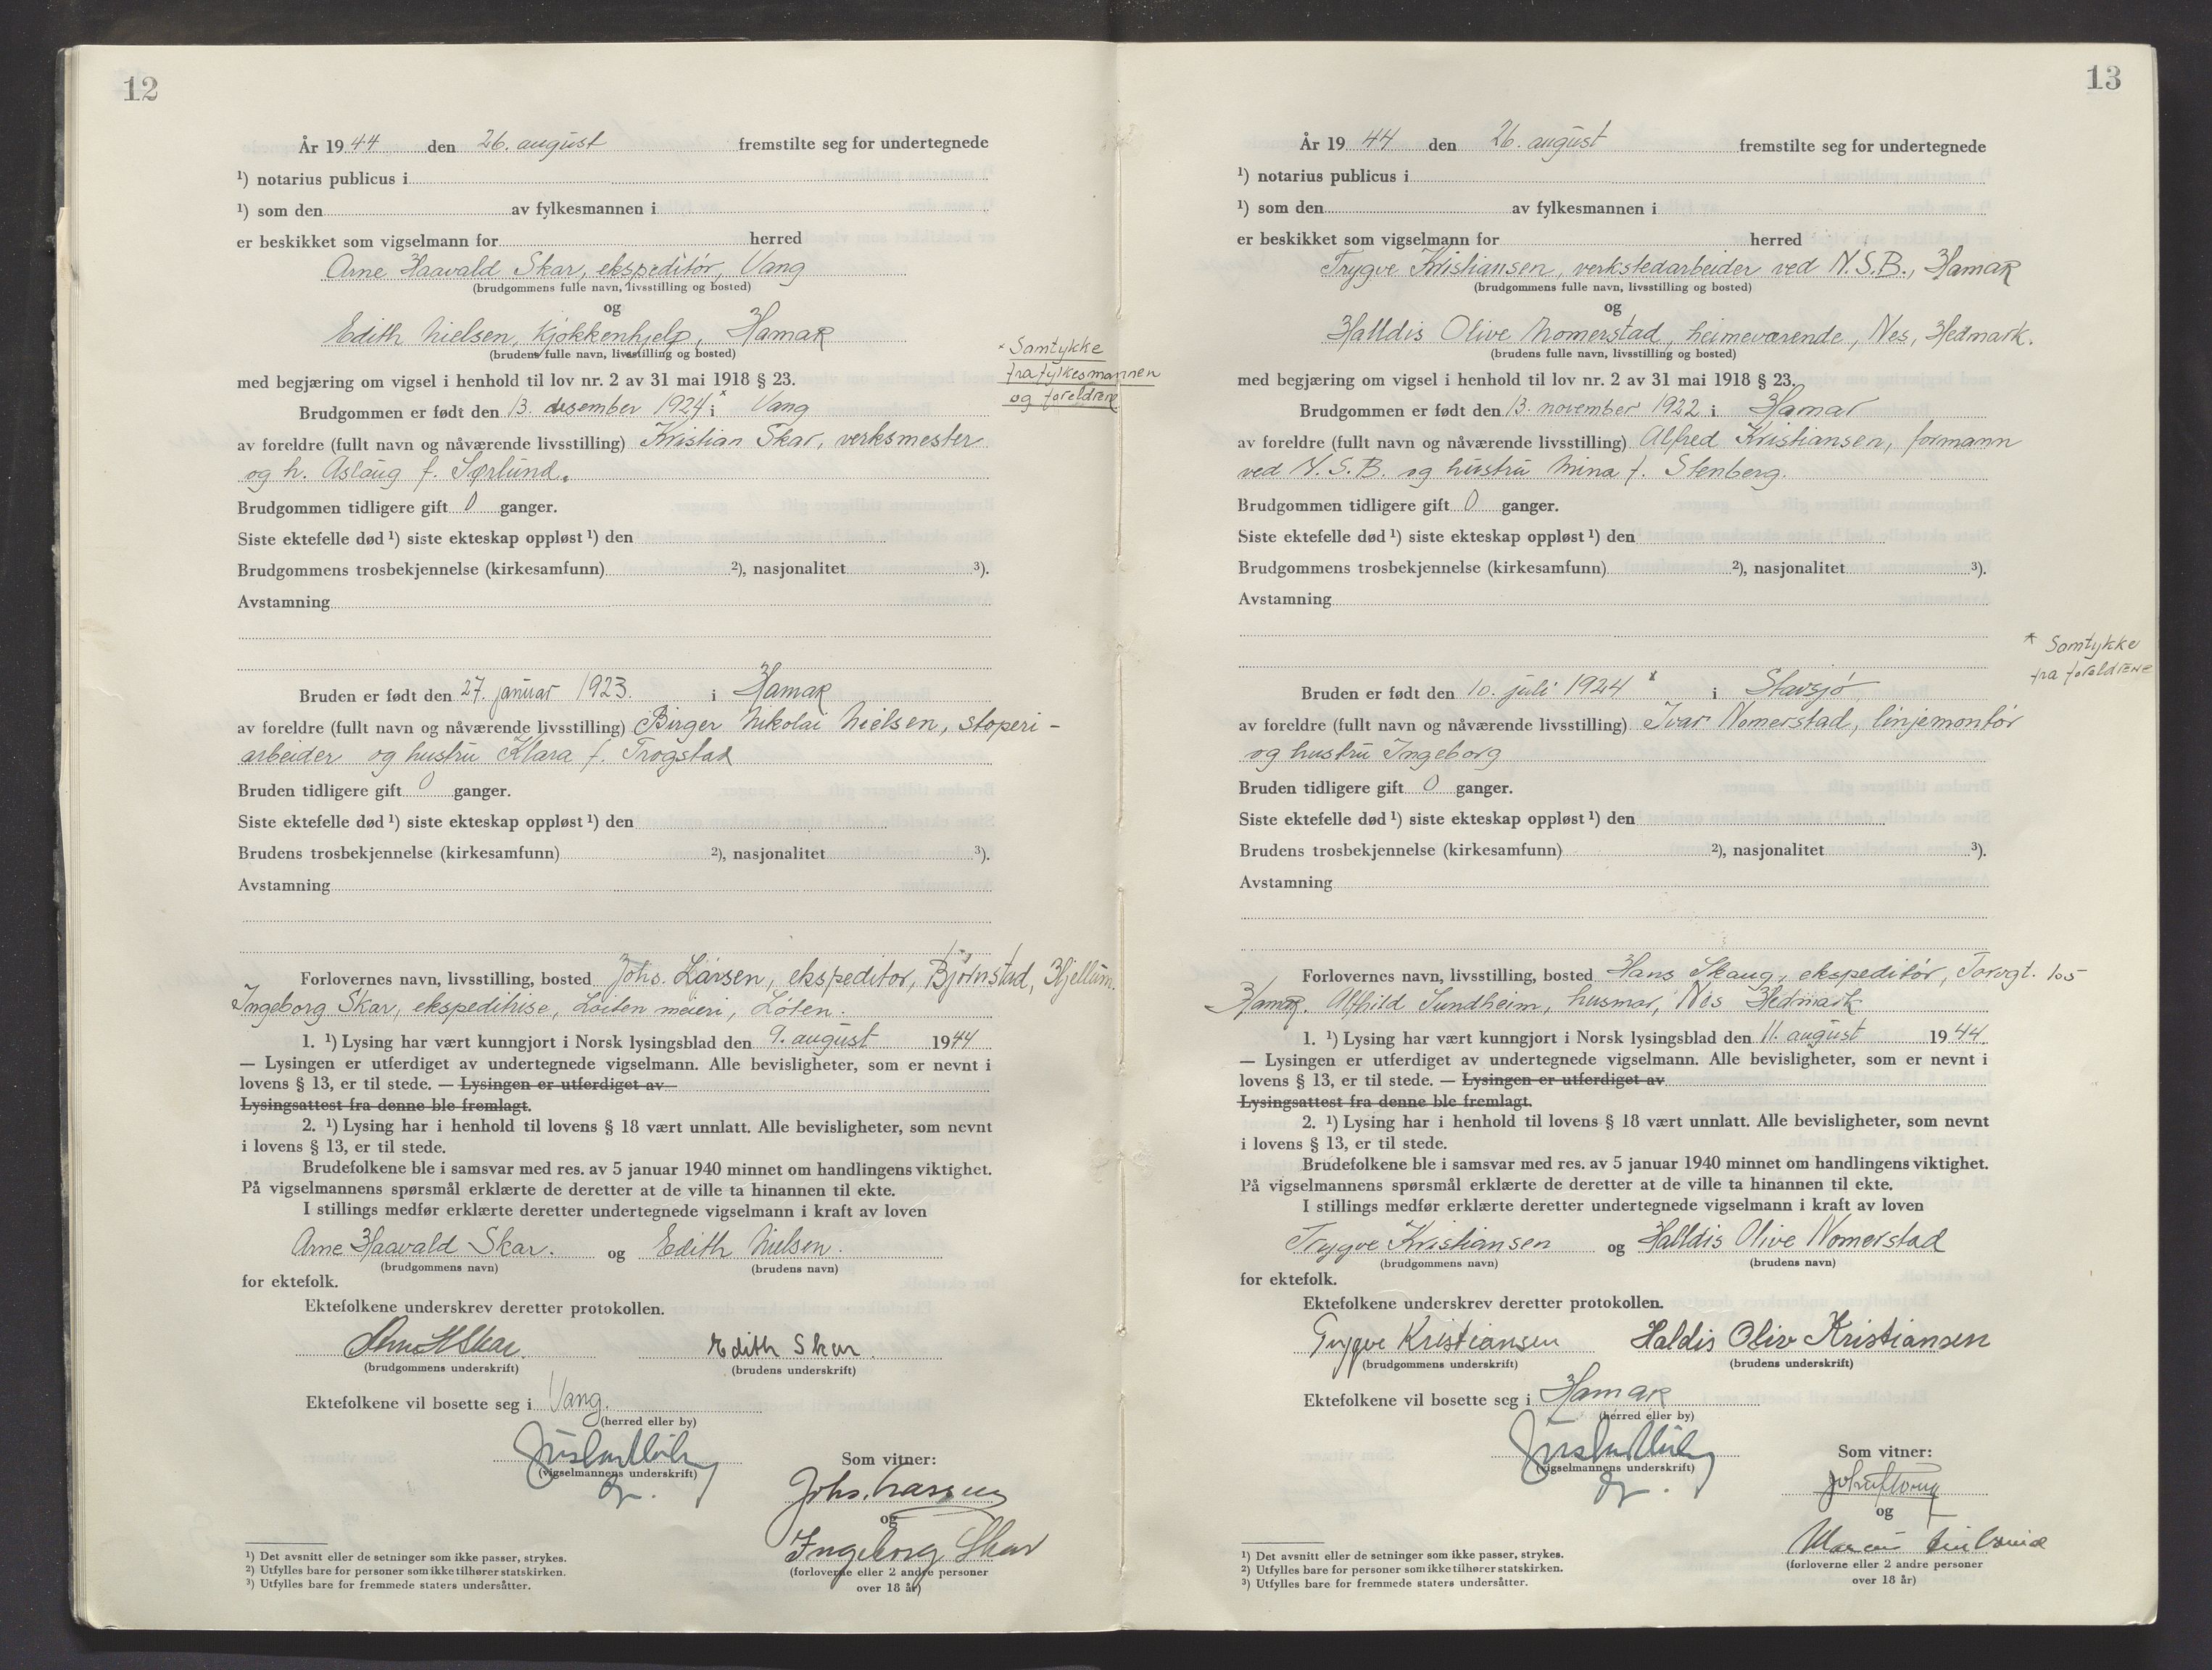 12
År 1944 den 26. august fremstilte seg for undertegnede
¹) notarius publicus i
¹) som den av fylkesmannen i
er beskikket som vigselmann for herred
Arne Haavald Skar, ekspeditör, Vang
(brudgommens fulle navn, livsstilling og bosted)
og
Edith Nielsen, kjøkkenhjelp, Hamar
(brudens fulle navn, livsstilling og bosted)
* Samtykke
fra fylkesmannen
og foreldrene
med begjæring om vigsel i henhold til lov nr. 2 av 31 mai 1918 § 23.
Brudgommen er født den 13. desember 1924* i Vang
av foreldre (fullt navn og nåværende livsstilling) Kristian Skar, verksmester
og h. Aslaug f. Sørlund.
Brudgommen tidligere gift 0 ganger.
Siste ektefelle død ¹) siste ekteskap oppløst ¹) den
Brudgommens trosbekjennelse (kirkesamfunn) ²), nasjonalitet ³).
Avstamning
Bruden er født den 27. januar 1923. i Hamar
av foreldre (fullt navn og nåværende livsstilling) Birger Nikolai Nielsen, støperi-
arbeider og hustru Klara f. Trogstad
Bruden tidligere gift 0 ganger.
Siste ektefelle død ¹) siste ekteskap oppløst ¹) den
Brudens trosbekjennelse (kirkesamfunn) ²), nasjonalitet ³).
Avstamning
Forlovernes navn, livsstilling, bosted Johs. Larsen, ekspeditør, Bjørnstad, Hjellum.
Ingeborg Skar, ekspeditrise, Løiten meieri, Løten.
1. ¹) Lysing har vært kunngjort i Norsk lysingsblad den 9. august 1944
— Lysingen er utferdiget av undertegnede vigselmann. Alle bevisligheter, som er nevnt i
lovens § 13, er til stede. — Lysingen er utferdiget av
Lysingsattest fra denne ble fremlagt.
2. ¹) Lysing har i henhold til lovens § 18 vært unnlatt. Alle bevisligheter, som nevnt
i lovens § 13, er til stede.
Brudefolkene ble i samsvar med res. av 5 januar 1940 minnet om handlingens viktighet.
På vigselmannens spørsmål erklærte de deretter at de ville ta hinannen til ekte.
I stillings medfør erklærte deretter undertegnede vigselmann i kraft av loven
Arne Haavald Skar. og Edith Nielsen.
(brudgommens navn) (brudens navn)
for ektefolk.
Ektefolkene underskrev deretter protokollen.
Arne H Skar. Edith Skar.
(brudgommens underskrift) (brudens underskrift)
Ektefolkene vil bosette seg i Vang.
(herred eller by)
(vigselmannens underskrift)
Som vitner:
Johs. Larsen
og
Ingeborg Skar
(forloverne eller 2 andre personer
over 18 år)
¹) Det avsnitt eller de setninger som ikke passer, strykes.
²) Utfylles bare for personer som ikke tilhører statskirken.
³) Utfylles bare for fremmede staters undersåtter.
13
År 1944 den 26. august fremstilte seg for undertegnede
¹) notarius publicus i
¹) som den av fylkesmannen i
er beskikket som vigselmann for herred
Trygve Kristiansen, verkstedarbeider ved N.S.B., Hamar
(brudgommens fulle navn, livsstilling og bosted)
og
Halldis Olive Nomerstad, heimeværende, Nes, Hedmark.
(brudens fulle navn, livsstilling og bosted)
med begjæring om vigsel i henhold til lov nr. 2 av 31 mai 1918 § 23.
Brudgommen er født den 13. november 1922 i Hamar
av foreldre (fullt navn og nåværende livsstilling) Alfred Kristiansen, formann
ved N.S.B. og hustru Mina f. Stenberg.
Brudgommen tidligere gift 0 ganger.
Siste ektefelle død ¹) siste ekteskap oppløst ¹) den
Brudgommens trosbekjennelse (kirkesamfunn) ²), nasjonalitet ³).
Avstamning
* Samtykke
fra foreldrene
Bruden er født den 10. juli 1924 * i Stavsjø
av foreldre (fullt navn og nåværende livsstilling) Ivar Nomerstad, linjemontör
og hustru Ingeborg
Bruden tidligere gift 0 ganger.
Siste ektefelle død ¹) siste ekteskap oppløst ¹) den
Brudens trosbekjennelse (kirkesamfunn) ²), nasjonalitet ³).
Avstamning
Forlovernes navn, livsstilling, bosted Hans Skaug, ekspeditör, Torvgt. 105
Hamar. Alfhild Sundheim, husmor, Nes Hedmark
1. ¹) Lysing har vært kunngjort i Norsk lysingsblad den 11. august 1944.
— Lysingen er utferdiget av undertegnede vigselmann. Alle bevisligheter, som er nevnt i
lovens § 13, er til stede. — Lysingen er utferdiget av
Lysingsattest fra denne ble fremlagt.
2. ¹) Lysing har i henhold til lovens § 18 vært unnlatt. Alle bevisligheter, som nevnt
i lovens § 13, er til stede.
Brudefolkene ble i samsvar med res. av 5 januar 1940 minnet om handlingens viktighet.
På vigselmannens spørsmål erklærte de deretter at de ville ta hinannen til ekte.
I stillings medfør erklærte deretter undertegnede vigselmann i kraft av loven
Trygve Kristiansen og Halldis Olive Nomerstad
(brudgommens navn) (brudens navn)
for ektefolk.
Ektefolkene underskrev deretter protokollen.
Trygve Kristiansen Haldis Oliv Kristiansen
(brudgommens underskrift) (brudens underskrift)
Ektefolkene vil bosette seg i Hamar
(herred eller by)
(vigselmannens underskrift)
Som vitner:
og
(forloverne eller 2 andre personer
over 18 år)
¹) Det avsnitt eller de setninger som ikke passer, strykes.
²) Utfylles bare for personer som ikke tilhører statskirken.
³) Utfylles bare for fremmede staters undersåtter.